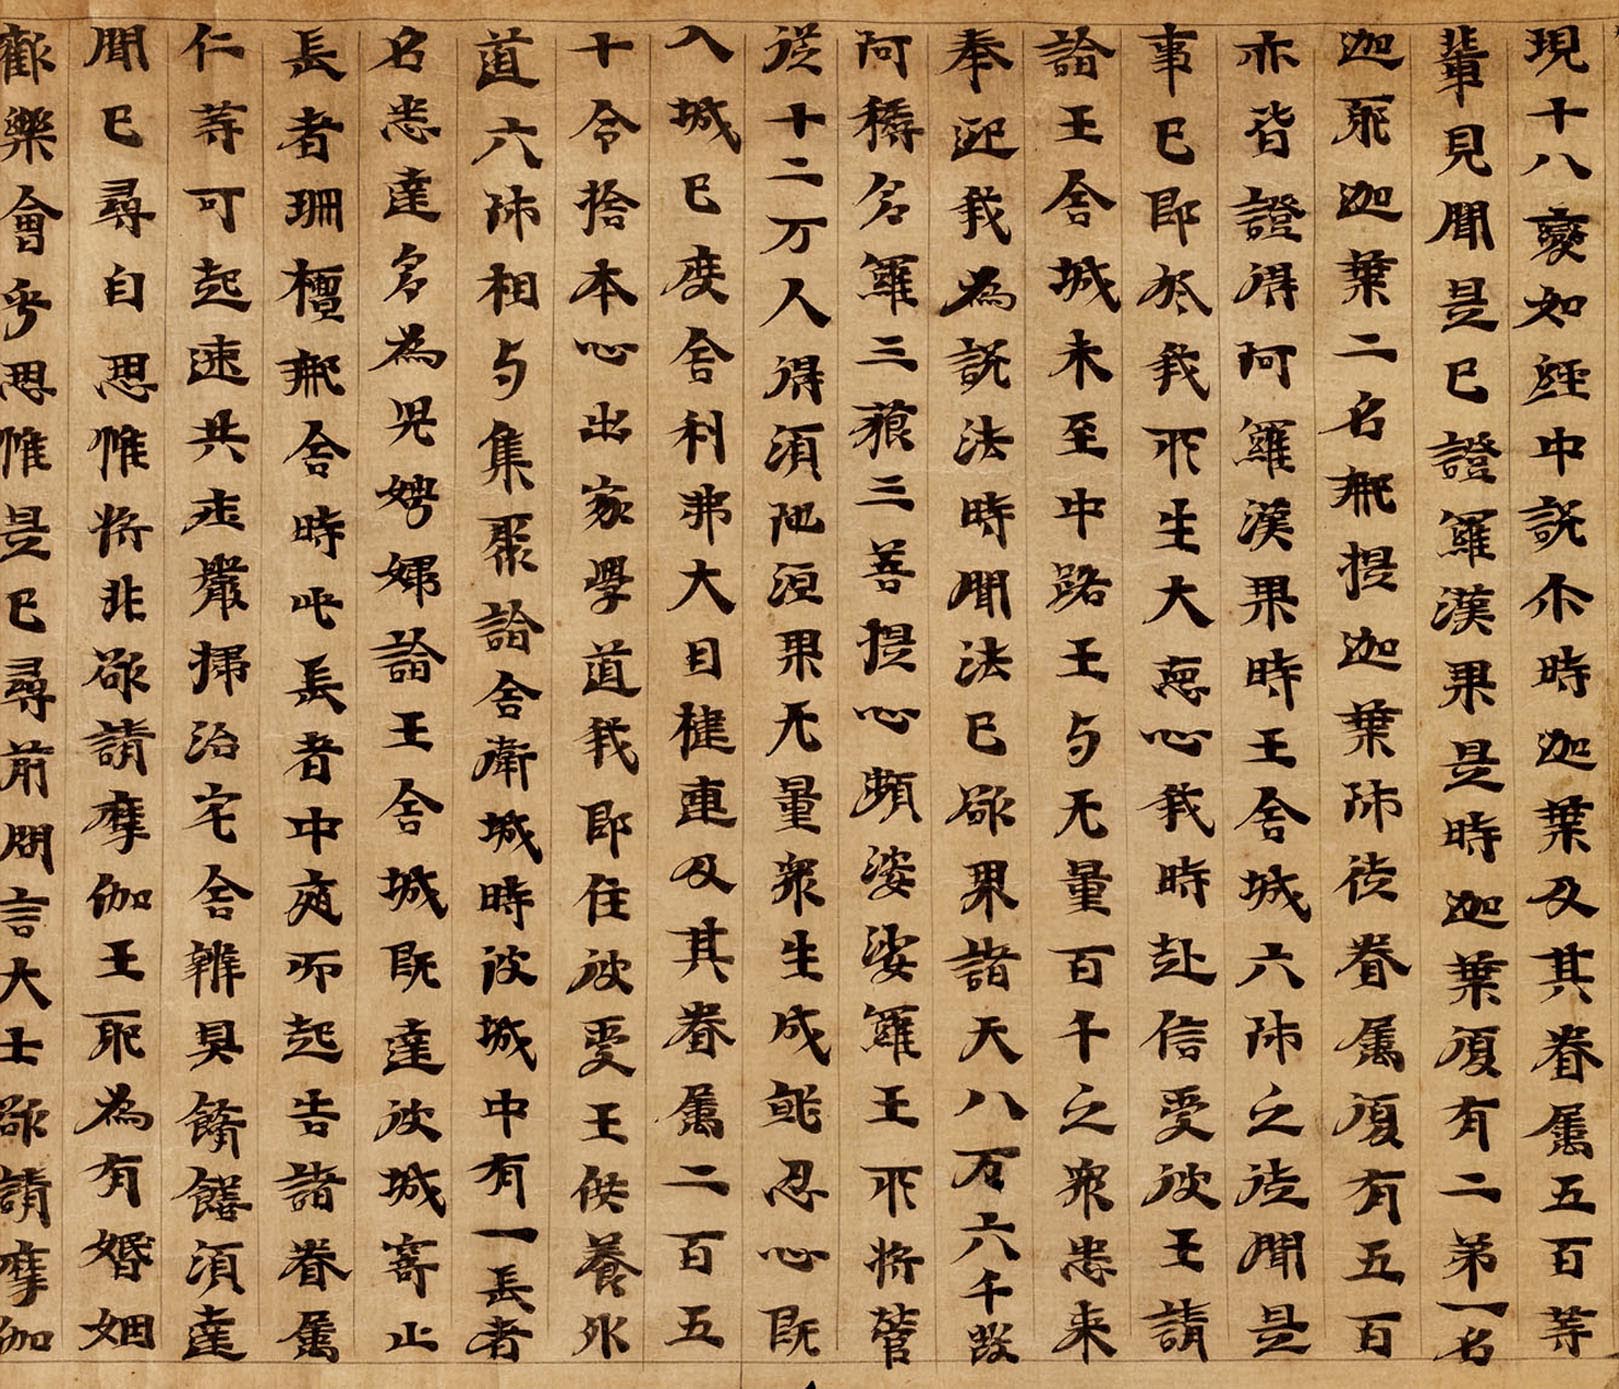 現十八變如經中說尒時迦葉及其眷屬五百等
輩見聞是已證羅漢果是時迦葉復有二弟一名
迦耶迦葉二名那提迦葉師徒眷屬復有五百
亦皆證得阿羅漢果時王舍城六師之徒聞是
事已即於我所生大惡心我時赴信受彼王請
詣王舍城未至中路王与无量百千之衆悉来
奉迎我為說法時聞法已欲界諸天八万六千發
阿耨多羅三藐三菩提心頻婆娑羅王所將營
從十二万人得須陁洹果无量衆生成就忍心既
入城已度舍利弗大目揵連及其眷屬二百五
十令捨本心出家學道我即住彼受王供養外
道六師相与集聚詣舍衛城時彼城中有一長者
名悉達多為兒娉婦詣王舍城既達彼城寄止
長者珊檀那舍時此長者中夜而起告諸眷屬
仁等可起速共莊嚴掃治宅舍辦具餚饍須達
聞已尋自思惟將非欲請摩伽王耶為有婚姻
歡樂會乎思惟是已尋前問言大士欲請摩伽